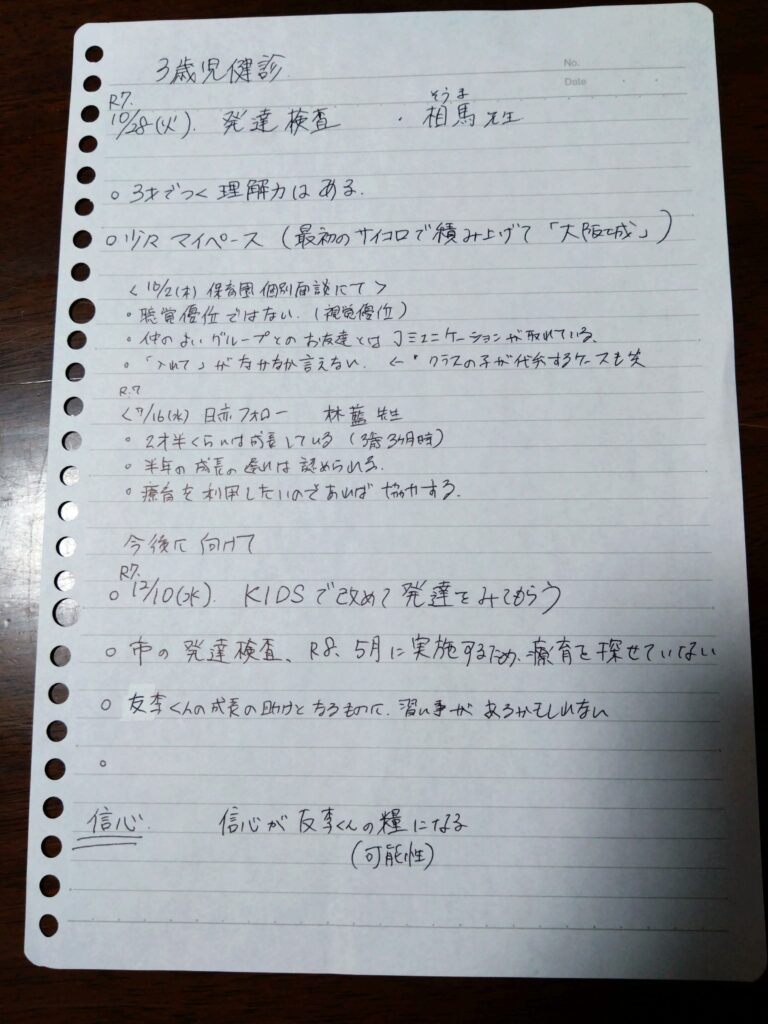 No.
Date
3歳児健診
R7.
10/28(火). 発達検査 ・相馬先生
そうま
○ 3才でつく理解力はある.
○ 少々マイペース (最初のサイコロで積み上げて「大阪城」)
<10/2(木) 保育園個別面談にて>
・聴覚優位ではない. (視覚優位)
・仲のよいグループとのお友達とはコミュニケーションが取れている、
・「入れて」がなかなか言えない. ←・クラスの子が代弁するケースも笑
R.7
<9/16(水) 日赤フォロー 林藍先生
・2才半くらいは成長している (3歳3ヶ月時)
・半年の成長の遅れは認められる.
・療育を利用したいのであれば協力する.
今後に向けて
R7.
○ 12/10(水). KIDSで改めて発達をみてもらう
○ 市の発達検査、R8、5月に実施するため、療育を探せていない
○ 友李くんの成長の助けとなるものに、習い事があるかもしれない
○
信心. 信心が友李くんの糧になる
(可能性)